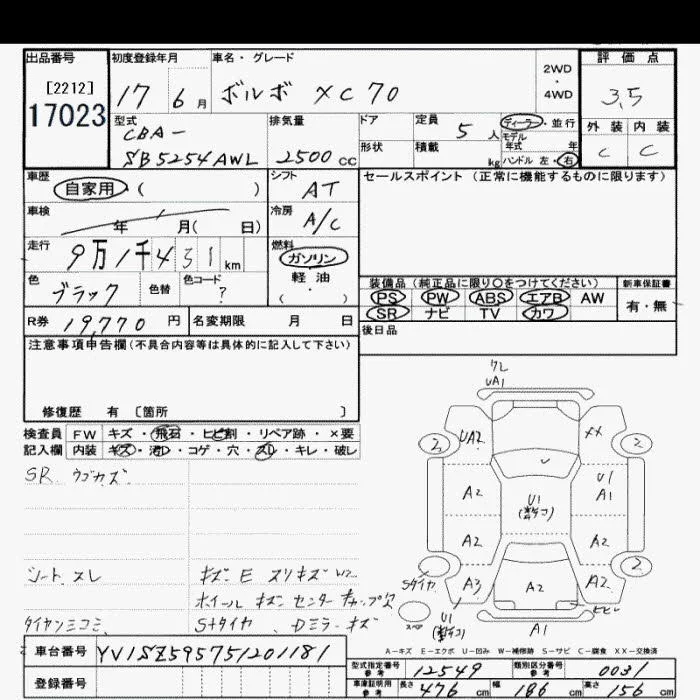 出品番号 初度登録年月 車名・グレード 2WD・4WD 評価点
[2212]
17023 17 6月 ボルボ XC70 3.5
型式 排気量 ドア 定員 5人 ディーラ・並行 外装 内装
CBA- モデル年式 年 C C
SB5254AWL 2500cc 形状 積載 kg ハンドル 左・右
車歴 シフト セールスポイント (正常に機能するものに限ります)
自家用 ( ) AT
車検 冷房
年 月( 日) A/C
走行 燃料
9万1千431km ガソリン
色 色替 色コード 軽油・ 装備品(純正品に限り〇をつけてください) 新車保証書
ブラック ? ( ) PS PW ABS エアB AW 有・無
SR ナビ TV カワ
R券 19,770円 名変期限 月 日 後日品
注意事項申告欄(不具合内容等は具体的に記入して下さい)
修復歴 有 〔箇所 〕
検査員 FW キズ・飛石・ヒビ割・リペア跡・×要
記入欄 内装 キズ・汚レ・コゲ・穴・スレ・キレ・破レ
SR ウゴカズ
シート スレ キズE スリキズ W2
ホイール キズ センターキャップ欠
タイヤンミコミ Sタイヤ Dミラーキズ
ワレ
UA1
2 UA2 XX 2
A2 U1 U1
A1
A2 A2
2
Sタイヤ A3 A2 A2
スペア U1 ヒビ
A1
A-キズ E-エクボ U-凹み W-補修跡 S-サビ C-腐食 XX-交換済
車台番号 YV1SZ595751201181
型式指定番号 参考 12549 類別区分番号 参考 0031
登録番号 車庫証明用 参考 長さ 476cm 幅 186cm 高さ 156cm